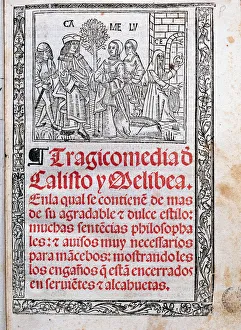 CA ME LV
¶ Tragicomedia ď
Calisto y Melibea.
Enla qual se contienē de mas
de su agradable & dulce estilo:
muchas sentēcias philosopha
les: & auisos muy necessarios
para mācebos: mostrandoles
los engaños q̄ estā encerrados
en seruiētes & alcahuetas.